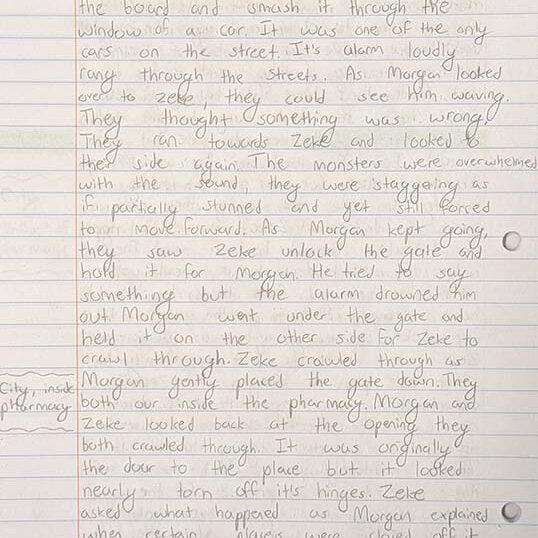 the board and smash it through the
window of a car. It was one of the only
cars on the street. It's alarm loudly
rang through the streets. As Morgan looked
over to zeke, they could see him waving.
They thought something was wrong.
They ran towards Zeke and looked to
their side again. The monsters were overwhelmed
with the sound, they were staggering as
if partially stunned and yet still forced
to move forward. As Morgan kept going,
they saw Zeke unlock the gate and
hold it for Morgan. He tried to say
something but the alarm drowned him
out. Morgan went under the gate and
held it on the other side for Zeke to
crawl through. Zeke crawled through as
City, inside pharmacy
Morgan gently placed the gate down. They
both our inside the pharmacy. Morgan and
Zeke looked back at the opening they
both crawled through. It was originally
the door to the place but it looked
nearly torn off it's hinges. Zeke
asked what happened as Morgan explained
when certain were off it